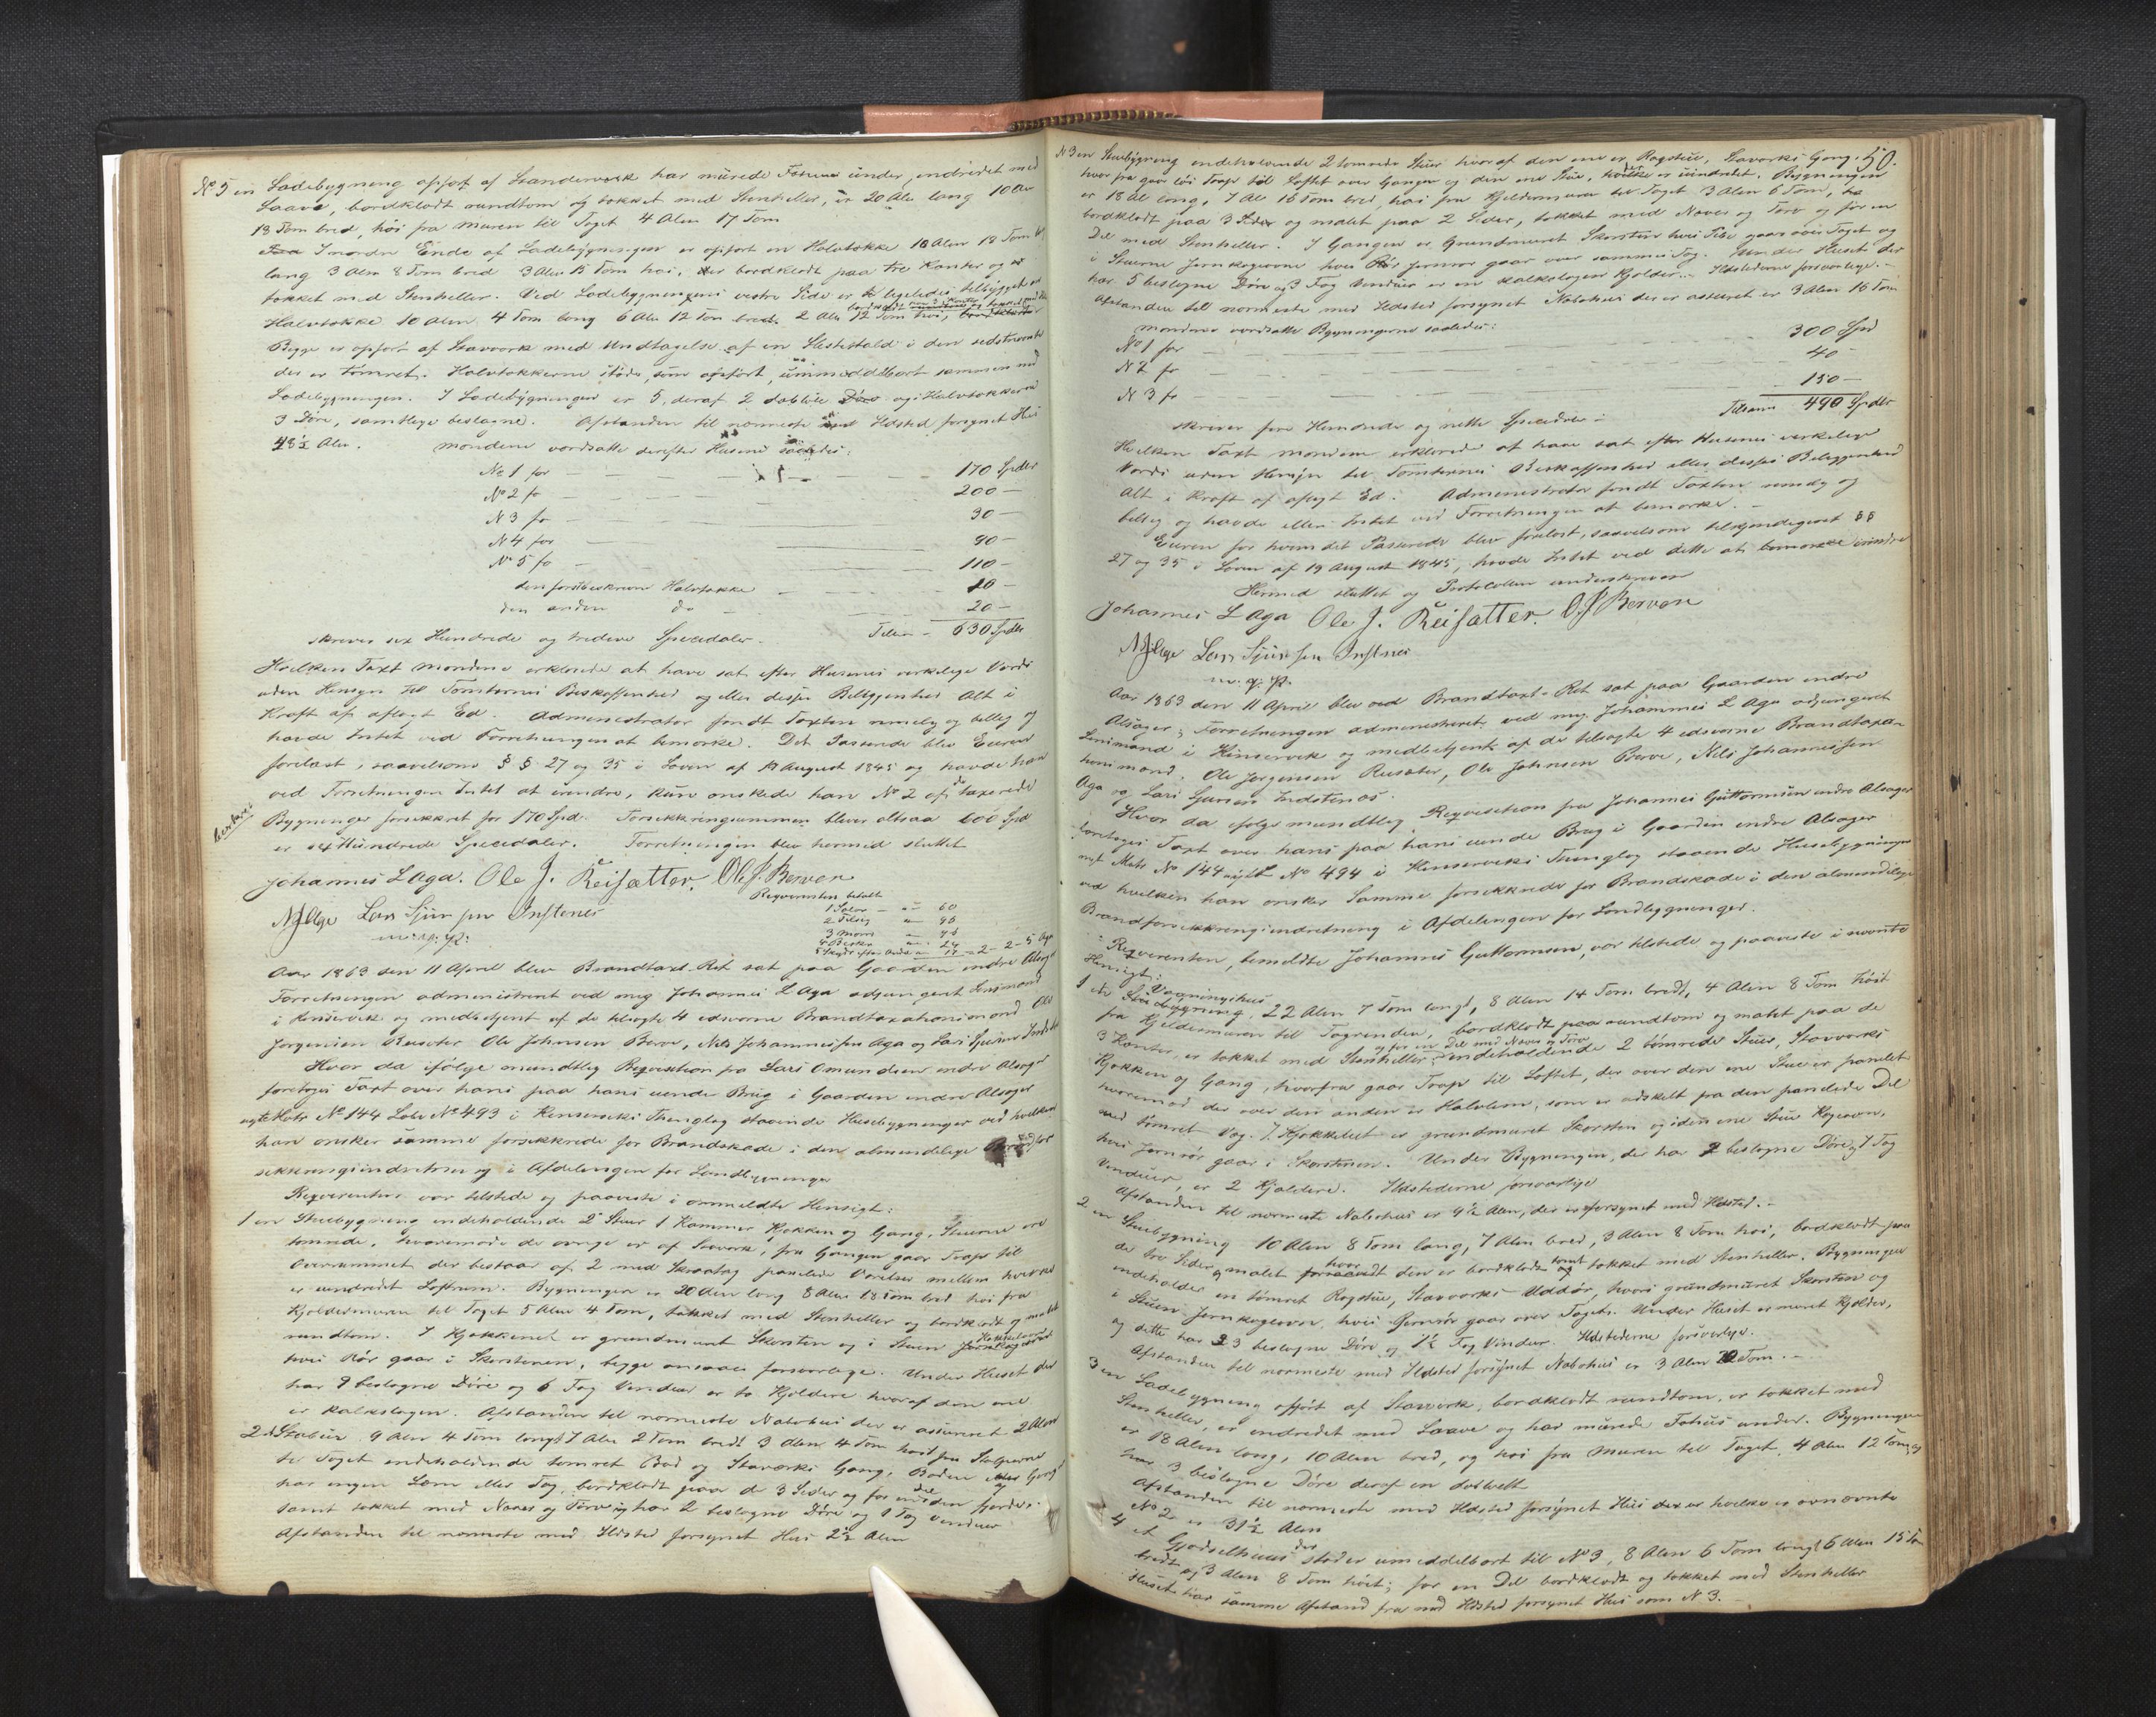 No 5 en Ladebygning opført af Standerverk har murede Føhuus under, indredet med
Laave, bordklædt rundtom og tækket med Steenheller, er 20 Alen lang 10 Alen
18 Tom bred, høi fra Muren til Taget 4 Alen 17 Tom
I nordre Ende af Ladebygningen er opført en Halvtække 10 Alen 18 Tom
lang 3 Alen 8 Tom bred 3 Alen 15 Tom høi, der bordklædt paa tre Kanter og
tækket med Stenheller. Ved Ladebygningens vestre Side er ligeledes tilbygget en
Halvtække 10 Alen 4 Tom lang 6 Alen 12 Tom bred 2 Alen 12 Tom høi,
Begge er opført af Stavverk med Undtagelse af en Hestestald i den sidstnævnte
der er tømret. Halvtækkerne støder, som opført, umiddelbart sammen med
Ladebygningen. I Ladebygningen er 5, deraf 2 dobbele Døre og i Halvtækkerne
3 Døre, samtlige beslagne. Afstanden til nærmeste med Ildsted forsynet Hus
48½ Alen. Mændene værdsatte derefter Husene saaledes:
No 1 for 170 Spdlr
No 2 fo 200 —
N 3 fo 30 —
N 4 for 90 —
No 5 fo 110 —
den førstbeskrevne Halvtække 10 —
den anden do 20 —
skriver sex Hundrede og tredeve Speciedaler. Tilsam 630 Spdlr
Hvilken Taxt Mændene erklærede at have sat efter Husenes virkelige Værdi
uden Hensyn til Tomternes Beskaffenhed og eller disses Beliggenhed Alt i
Kraft af aflagt Ed. Administrator fandt Taxten rimelig og billig og
havde Intet ved Forretningen at bemærke. Det Passerede blev Eieren
forelæst, saavelsom §§ 27 og 35 i Loven af 19 August 1845 og havde han
ved Forretningen Intet at erindre, kun ønskede han No 2 af de taxerede
Bygninger forsikkret for 170 Spd. Forsikkringsummen bliver altsaa 600 Spd
er sex Hundrede Speciedaler. Forretningen blev hermed sluttet
Johannes L Aga. Ole J. Reisæter. Ole J. Berven
N J Aga Lars Sjursen Instenes
m. p. P.
Reqvirenten betalt
Aar 1863 den 11 April blev Brandtaxt-Ret sat paa Gaarden indre Alsager
Forretningen administreret ved mig Johannes L Aga adjungeret Lensmand
i Kinservik og medbetjent af de tilsagte 4 edsvorne Brandtaxationsmænd Ole
Jørgensen Reisæter Ole Johnsen Berve, Nils Johannessen Aga og Lars Sjursen Indstenæs
Hvor da ifølge mundtlig Reqvisition fra Lars Omundsen indre Alsager
foretoges Taxt over hans paa hans eiende Brug i Gaarden indre Alsager
nyt Matr No 144 Løbe No 493 i Kinserviks Thinglag staaende Husebygninger ved hvilken
han ønsker samme forsikkrede for Brandskade i den almindelige Brandfor-
sikkringsindretning i Afdelingen for Landbygninger
Reqvirenten var tilstede og paaviste i ommeldte Hensigt:
1 en Stuebygning indeholdende 2 Stuer 1 Kammer Kjøkken og Gang, Stuerne ere
tømrede, hvorimod de øvrige er af Stavverk, fra Gangen gaar Trap til
Overrummet der bestaar af 2 med Skraatag panelede Værelser mellem hvilke
er uindredt Loftrum. Bygningen er 20 Alen lang 8 Alen 18 Tom bred høi fra
Kjældermuren til Taget 5 Alen 4 Tom, tækket med Stenheller og bordklædt og malet
rundtom. I Kjøkkenet er grundmuret Skorsten og i Stuen Kakkelovn
hvis Rør gaar i Skorstenen, begge ansaaes forsvarlige. Under Huset der
har 9 beslagne Døre og 6 Fag Vinduer er to Kjeldere hvoraf den ene
er kalkslagen. Afstanden til nærmeste Nabohus der er assureret 2 Alen
2 et Stabur 9 Alen 4 Tom langt 7 Alen 2 Tom bredt 3 Alen 4 Tom høit fra Stolperne
til Taget indeholdende tømret Bod og Stavverks Gang, Boden og Gang
har ingen Læm eller Tag, bordklædt paa de 3 Sider og for en Del den fjerde,
samt tækket med Næver og Tørv og har 2 beslagne Døre og 1 Fag Vinduer
Afstanden til nærmeste med Ildsted forsynet Hus 2½ Alen
50.
N 3 en Stuebygning indeholdende 2 tømrede Stuer hvoraf den ene er Røgstue, Stavverks Gang,
hvor fra gaar løs Trap til Loftet over Gangen og den ene Stue, hvilket er uindredet. Bygningen
er 18 Al lang, 7 Al 16 Tom bred, høi fra Kjeldermuren til Taget 3 Alen 6 Tom, er
bordklædt paa 3 Sider og malet paa 2 Sider, tækket med Næver og Tørv og for en
Del med Stenheller. I Gangen er Grundmuret Skorsten hvis Pibe gaar over Taget og
i Stuerne Jernkogeovne hvis Rør Jernrør gaar over samme Tag. Under Huset der
har 5 beslagne Døre og 3 Fag Vinduer er en kalkslagen Kjelder. Ildstederne forsvarlige. —
Afstanden til nærmeste med Ildsted forsynet Nabohus der er assuret er 3 Alen 16 Tom
Mændene værdsatte Bygningerne saaledes:
No 1 for 300 Spd
N 2 fo 40 —
N 3 fo 150 —
Tilsam 490 Spdlr
skriver fire Hundrede og nitti Speciedaler
Hvilken Taxt Mændene erklærede at have sat efter Husenes virkelige
Værdi uden Hensyn til Tomternes Beskaffenhed eller disses Beliggenhed
Alt i Kraft af aflagt Ed. Administrator fandt Taxten rimelig og
billig og havde ellers Intet ved Forretningen at bemærke. —
Eieren for hvem det Passerede blev forelæst, saavelsom tilkjendegivet §§
27 og 35 i Loven af 19 August 1845, havde Intet ved dette at bemærke erindre
Hermed sluttet og Protocollen underskreven
Johannes L Aga Ole J. Reisæter. O. J. Berven
N J Aga Lars Sjursen Instnes
m. p. P.
Aar 1863 den 11 April blev ved Brandtaxt-Ret sat paa Gaarden indre
Alsager, Forretningen administreret ved mig Johannes L Aga adjungeret
Lensmand i Kinservik og medbetjent af de tilsagte 4 edsvorne Brandtaxa-
tionsmænd, Ole Jørgensen Reisæter, Ole Johnsen Berve, Nils Johannessen
Aga og Lars Sjursen Indstenæs.
Hvor da ifølge mundtlig Reqvisition fra Johannes Guttormsen indre Alsager
foretoges Taxt over hans paa hans eiende Brug i Gaarden indre Alsager
nyt Matr No 144 nyt L No 494 i Kinserviks Thinglag staaende Husebygninger
ved hvilken han ønsker Samme forsikkrede for Brandskade i den almindelige
Brandforsikkringsindretning i Afdelingen for Landbygninger.
Reqvirenten, bemeldte Johannes Guttormsen, var tilstede og paaviste i nævnte
Hensigt:
1 et Vaaningshus, 22 Alen 7 Tom langt, 8 Alen 14 Tom bredt, 4 Alen 8 Tom høit
fra Kjeldermuren til Tagrenden, bordklædt rundtom og malet paa de
3 Kanter, er tækket med Stenheller og for en Del med Næver og Tørv indeholdende 2 tømrede Stuer, Stavverks
Kjøkken og Gang, hvorfra gaar Trap til Loftet, der over den ene Stue er panelet
hvorimod der over den anden er Halvlem, som er adskilt fra den panelede Del
med tømret Væg. I Kjøkkenet er grundmuret Skorsten og i den ene Stue Kogeovn,
hvis Jernrør gaar i Skorstenen. Under Bygningen, der har 7 beslagne Døre og 7 Fag
Vinduer, er 2 Kjældere. Ildstederne forsvarlige
Afstanden til nærmeste Nabohus er 4½ Alen, der er forsynet med Ildsted. —
2 en Stuebygning 10 Alen 8 Tom lang, 7 Alen bred, 3 Alen 8 Tom høi, bordklædt paa
de tre Sider og malet hvor den er bordklædt samt tækket med Stenheller. Bygningen
indeholder en tømret Røgstue, Stavverks Uddør, hvori grundmuret Skorsten og
i Stuen Jernkogeovn, hvis Jernrør gaar over Taget. Under Huset er muret Kjelder,
og dette har 3 beslagne Døre og 1½ Fag Vinduer. Ildstederne forsvarlige.
Afstanden til nærmeste med Ildsted forsynet Nabohus er 3 Alen 20 Tom. —
3 en Ladebygning opført af Stavverk, bordklædt rundtom, er tækket med
Stenheller, er indredet med Laave og har murede Føhuus under. Bygningen
er 18 Alen lang, 10 Alen bred, og høi fra Muren til Taget, 4 Alen 12 Tom, og
har 3 beslagne Døre deraf en dobbelt
Afstanden til nærmeste med Ildsted forsynet Hus hvilke er ovennævnte
No 2 er 31½ Alen
4 et Gjødselhuus der støder umiddelbart til No 3, 8 Alen 6 Tom langt 6 Alen 15 Tom
bredt og 3 Alen 8 Tom høit; for en Del bordklædt og tækket med Stenheller
Huset har samme Afstand fra med Ildsted forsynet Hus som N 3. —